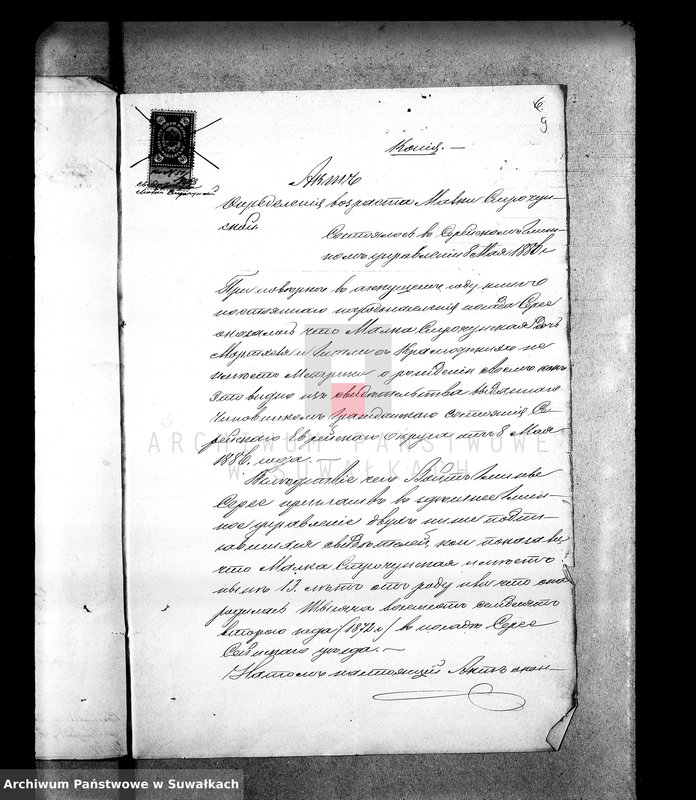 6
9
Копія. —
Актъ
Опредѣленія возраста Малки Сттрочун-
ской
Состоялось въ Серейскомъ Гмин-
номъ управленіи 8 Мая 1886 г.
При повѣркѣ въ текущемъ году книгъ
постояннаго народонаселенія посада Серее
оказалось что Малка Строчунская дочь
не
имѣетъ Метрики о рожденіи своемъ какъ
это видно изъ свидѣтельства выданнаго
Чиновникомъ Гражданскаго Состоянія Се-
рейскаго Еврейскаго Округа отъ 8 Мая
1886 года. —
ARCHIWUM PAŃSTWOWE
W SUWAŁKACH
Вслѣдствіе чего Войтъ Гмины
Серее пригласивъ въ здѣшнее Гмин-
ное управленіе двухъ ниже подпи-
савшихся свидѣтелей, кои показали
что Малка Строчунская имѣетъ
нынѣ 13 лѣтъ отъ роду и что она
родилась тысяча восемьсотъ семьдесятъ
второго года (1872 г.) въ посадѣ Серее
Сейнскаго уѣзда. —
На томъ настоящій Актъ окон-
Archiwum Państwowe w Suwałkach